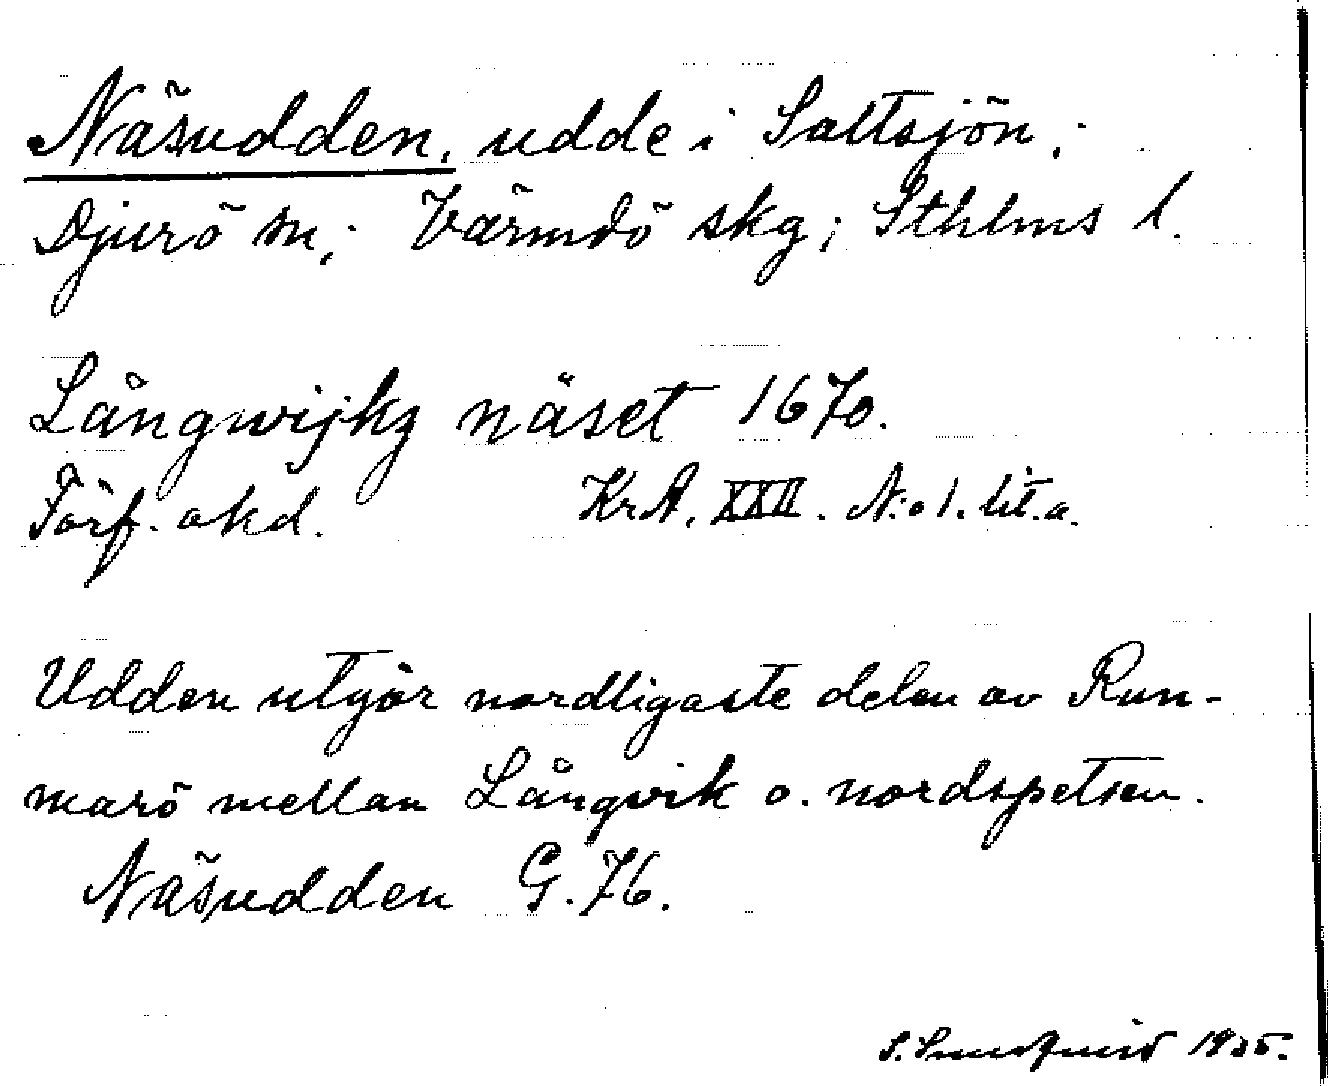 Näsudden, udde i Saltsjön;
Djurö sn; Värmdö skg; Sthlms l.
Långwijkz näset 1670.
Förf. okd. Kr.A. XXII. N:o 1. lit. a.
Udden utgör nordligaste delen av Run-
marö mellan Långvik o. nordspetsen.
Näsudden G. 76.
S. Sundqvist